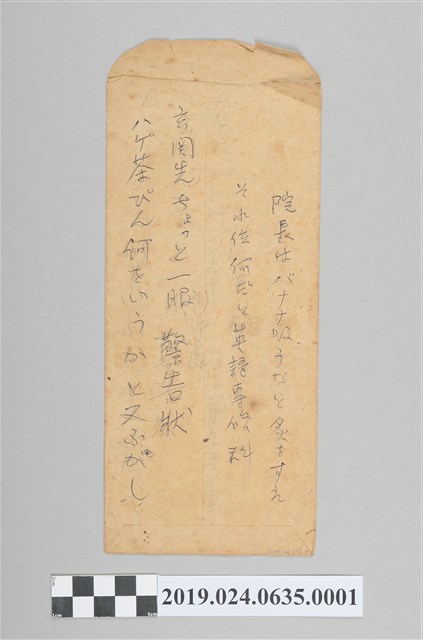 院長はバナナ吸うなと灸をすえ
それ位何だと英語専修科
警告状
玄関先ちょっと一服
ハゲ茶びん何をいうかと又ふかし
2019.024.0635.0001
1cm
5cm